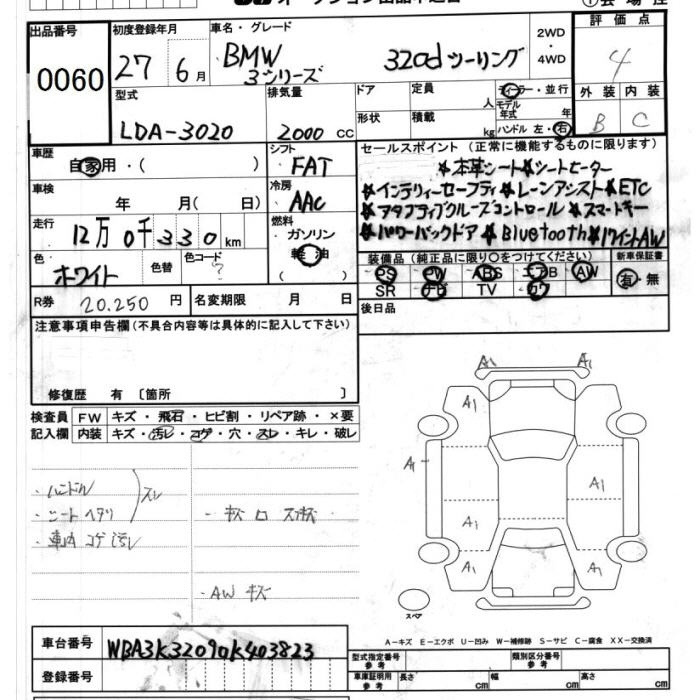 出品番号 0060
初度登録年月 27 6月
車名・グレード BMW 3シリーズ 320dツーリング
2WD・4WD
評価点 4
外装 B 内装 C
型式 LDA-3D20
排気量 2000 CC
ドア 形状
定員 人
積載 kg
ディーラー・並行
モデル年式 年
ハンドル 左・右
車歴 自家用・( )
シフト FAT
車検 年 月( 日)
冷房 AAC
走行 12万0千330km
燃料 ガソリン 軽油 ( )
色 ホワイト 色替 色コード ?
R券 20.250 円 名変期限 月 日
セールスポイント(正常に機能するものに限ります)
★本革シート★シートヒーター
★インテリィセーフティ★レーンアシスト★ETC
★アダプティブクルーズコントロール★スマートキー
★パワーバックドア★Bluetooth★17インチAW
装備品(純正品に限り○をつけてください) 新車保証書
PS PW ABS エアB AW 有・無
SR ナビ TV カワ
後日品
注意事項申告欄(不具合内容等は具体的に記入して下さい)
修復歴 有〔箇所 〕
検査員記入欄
FW キズ・飛石・ヒビ割・リペア跡・×要
内装 キズ・汚レ・コゲ・穴・スレ・キレ・破レ
・ハンドル スレ
・シートヘタリ
・車内コゲ汚レ
・キズ
・AWキズ
A1 A1
A1 A1
A1
A1
A1
A1 A1
スペア
A-キズ E-エクボ U-凹み W-補修跡 S-サビ C-腐食 XX-交換済
車台番号 WBA3K32090K403823
登録番号
型式指定番号 参考
類別区分番号 参考
車庫証明用 参考 長さ cm 幅 cm 高さ cm